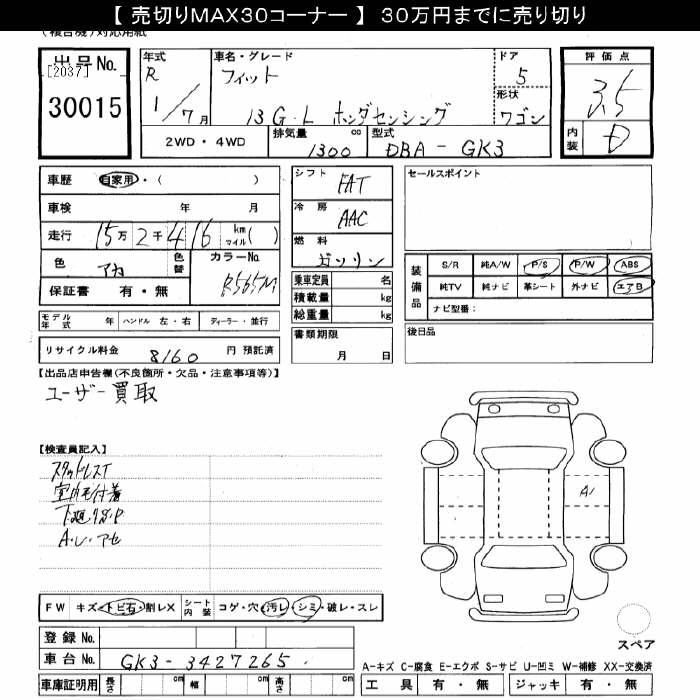 【 売切りMAX30コーナー 】 30万円までに売り切り
(複合機)対応用紙
出品No.
[2037]
30015
年式
R
1/7月
車名・グレード
フィット
13G・L ホンダセンシング
ドア
5
形状
ワゴン
2WD・4WD
排気量
1300 cc
型式
DBA-GK3
評価点
3.5
内装
D
車歴 自家用・( )
車検 年 月
走行 15万2千416 km マイル( )
色 アカ 色替
カラーNo. R565M
保証書 有・無
モデル年式 年 ハンドル 左・右 ディーラー・並行
リサイクル料金 8160 円 預託済
シフト FAT
冷房 AAC
燃料 ガソリン
乗車定員 名
積載量 kg
総重量 kg
書類期限
月 日
セールスポイント
装備品
S/R 純A/W P/S P/W ABS
純TV 純ナビ 革シート 外ナビ エアB
ナビ型番:
後日品
【出品店申告欄(不良箇所・欠品・注意事項等)】
ユーザー買取
【検査員記入】
スタッドレスT
室内毛付着
A・L・アセ
A1
FW キズ・トビ石・割レX シート内装 コゲ・穴・汚レ・シミ・破レ・スレ
登録No.
車台No. GK3-3427265
車庫証明用 長さ cm 幅 cm 高さ cm
スペア
A-キズ C-腐食 E-エクボ S-サビ U-凹ミ W-補修 XX-交換済
工具 有・無 ジャッキ 有・無